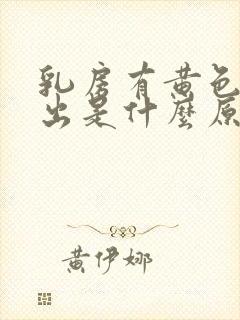 乳房有黄色
出是什麼原
黄伊娜